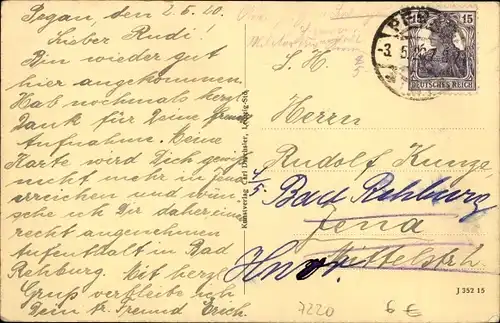 Segan, den 2.5.20.
Lieber Rudi!
Bin wieder gut
hier angekommen.
Hab nochmals herzl.
Dank für Deine
Aufnahme. Deine
Karte wird Dich gewiß
nicht mehr in Jena
erreichen und wün-
sche ich Dir daher eine
recht angenehmen
Aufenthalt in Bad
Rehburg. Mit herzl.
Gruß verbleibe ich
Dein tr. Freund Erich.
Kunstverlag Carl Döchsler, Leipzig-Stö.
3.5.
15
DEUTSCHES REICH
S. H.
Herrn
Rudolf Kunze
4/5 Bad Rehburg
Jena
Mittelstr.
Hnvr.
J 352 15
7220
6 €